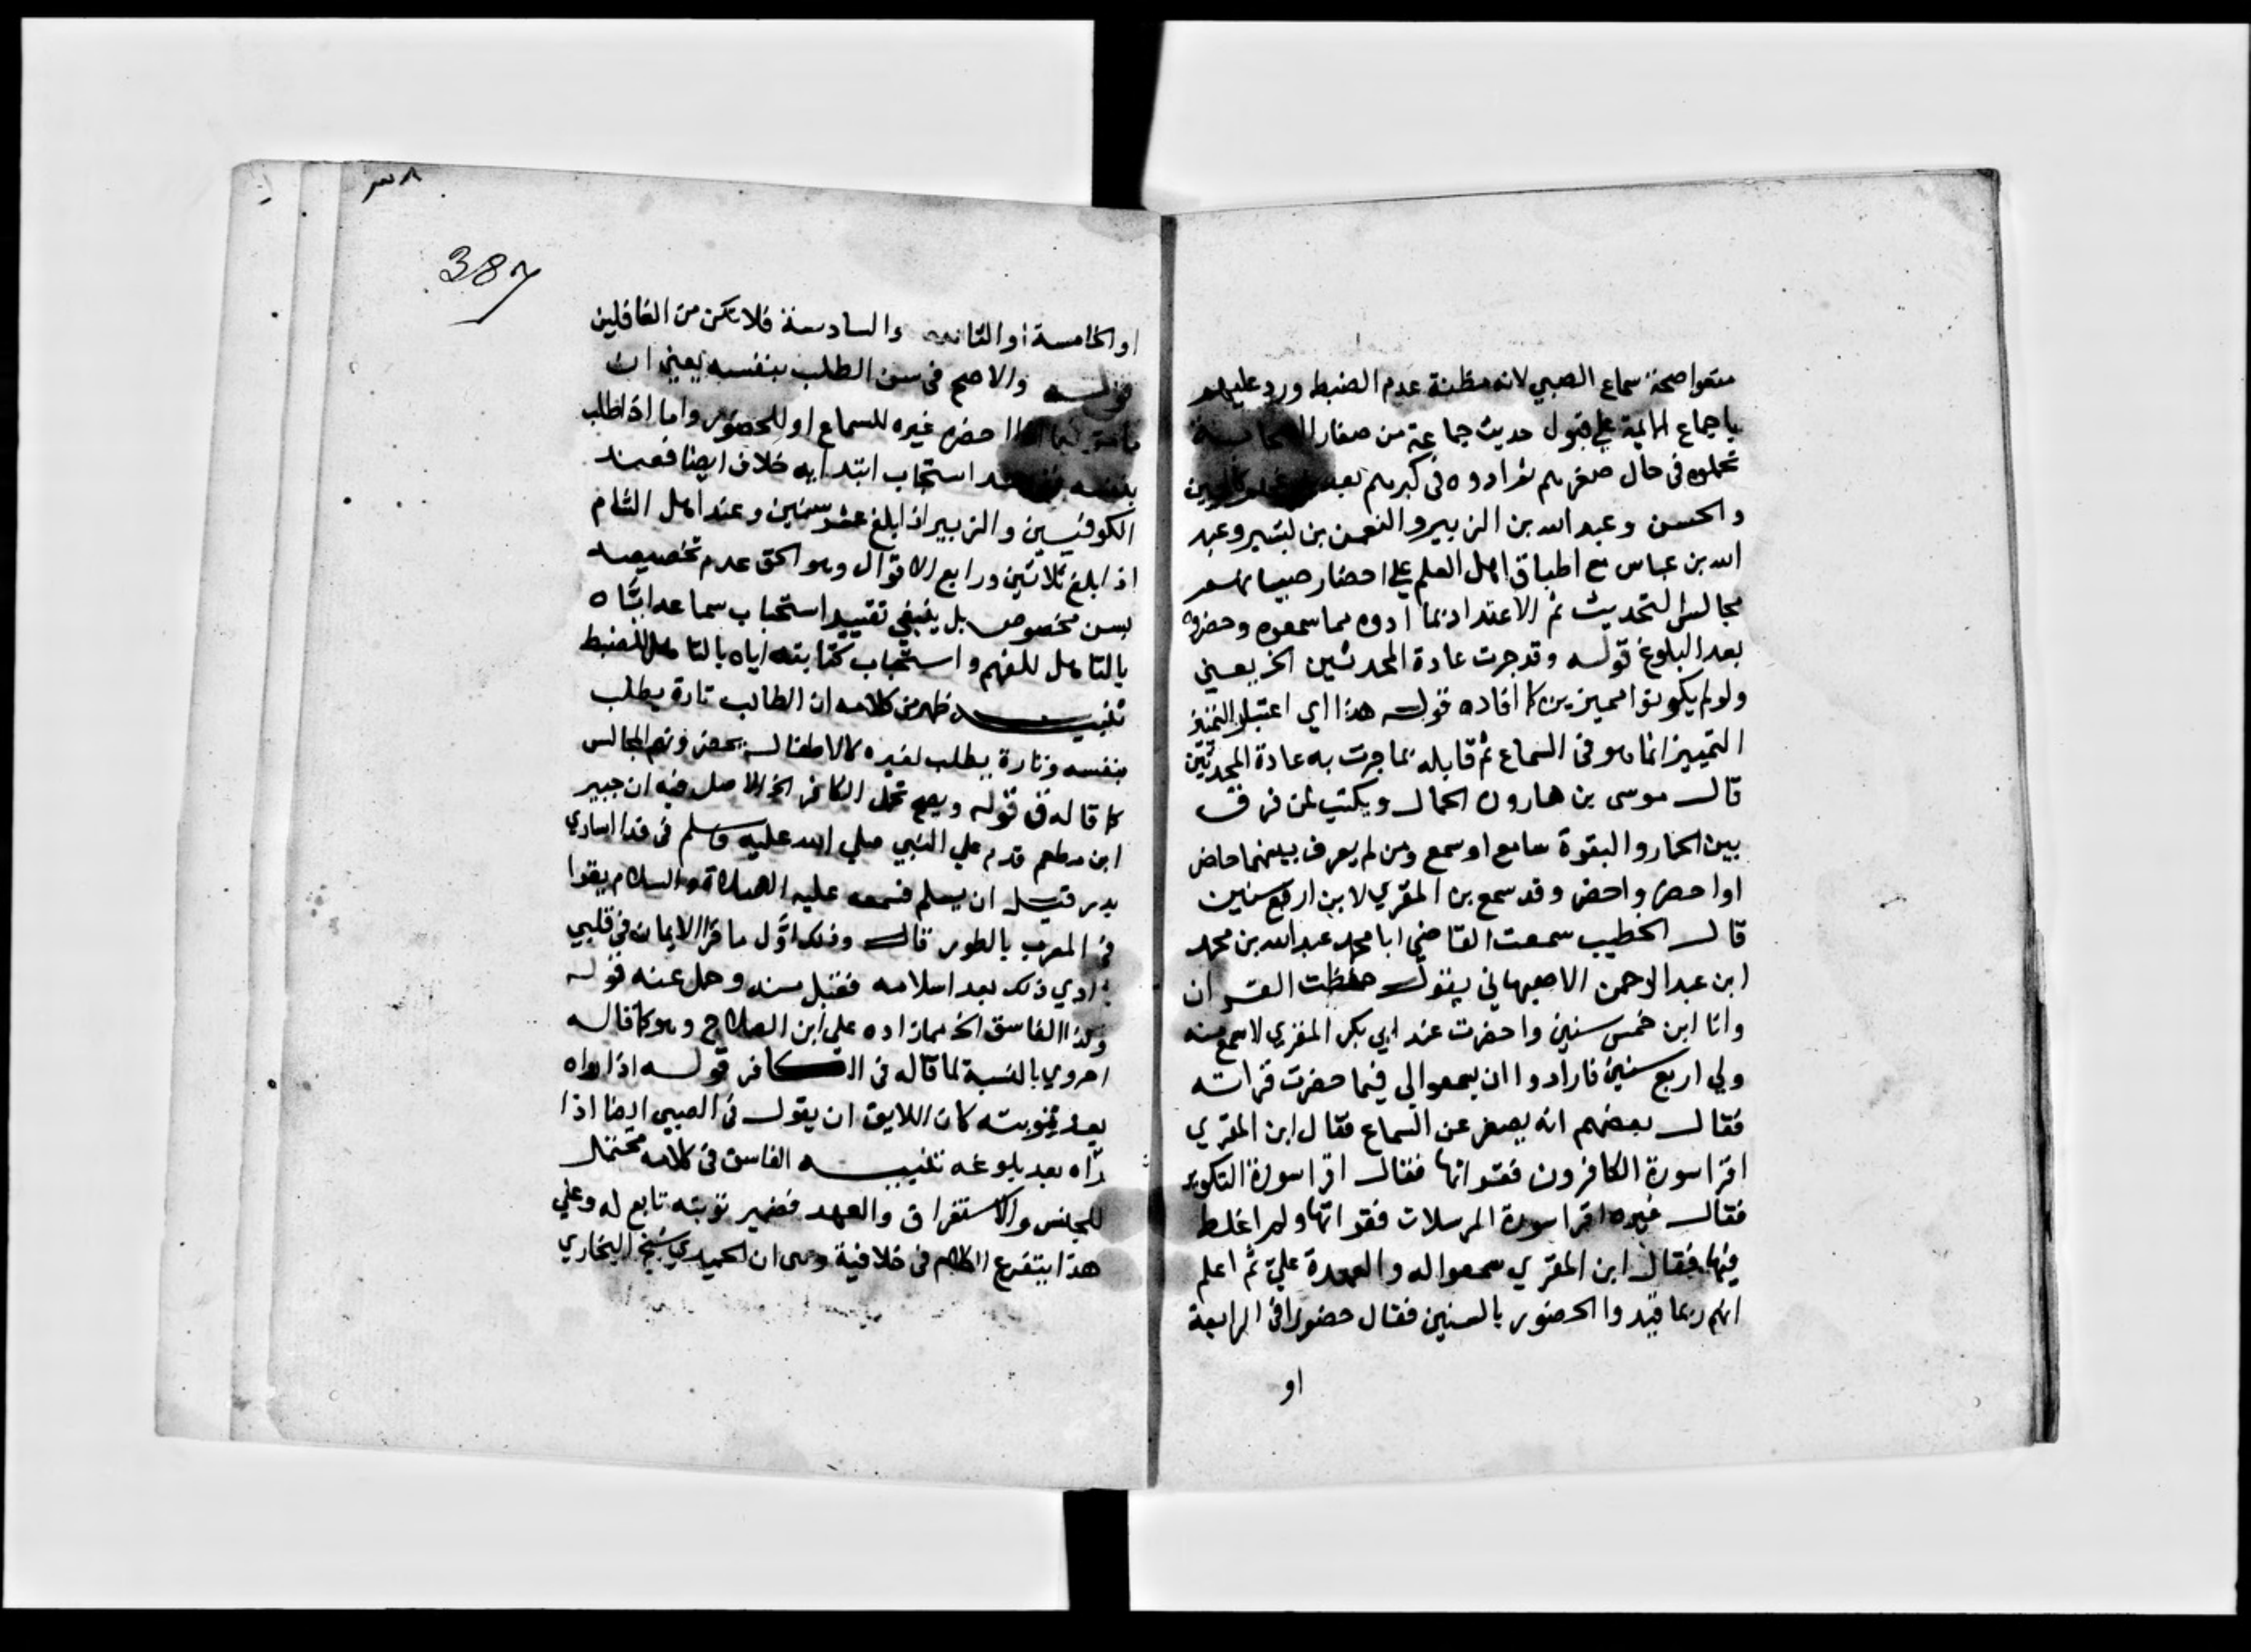 منعوا صحة سماع الصبي لانه مظنة عدم الضبط ورد عليهم
باجماع الايمة علي قبول حديث جماعة من صغار الصحابة
تحملوه في حال صغرهم ثم ادوه في كبرهم
والحسن وعبد الله بن الزبير والنعمن بن بشير وعبد
الله بن عباس مع اطباق اهل العلم علي احضار صبيانهم
مجالس التحديث ثم الاعتداد بما ادوه مما سمعوه وحضروه
بعد البلوغ قوله وقد جرت عادة المحدثين الخ يعني
ولو لم يكونوا مميزين كما افاده قوله هذا اي اعتبار
التمييز انما هو في السماع ثم قابله بما جرت به عادة المحدثين
قال موسى بن هارون الحمال ويكتب لمن فرق
بين الحمار والبقرة سامع او سمع ومن لم يعرف بينهما حاضر
او احضر واحضر وقد سمع بن المقري لابن اربع سنين
قال الخطيب سمعت القاضي ابا محمد عبد الله بن محمد
ابن عبد الرحمن الاصبهاني يقول حفظت القران
وانا ابن خمس سنين واحضرت عند ابي بكر المقري لاسمع منه
ولي اربع سنين فارادوا ان يسمعوا لي فيما حضرت قراته
فقال بعضهم انه يصغر عن السماع فقال ابن المقري
اقرا سورة الكافرون فقراتها فقال اقرا سورة التكوير
فقال غيره اقرا سورة المرسلات فقراتها ولم اغلط
فيها فقال ابن المقري سمعوا له والعهدة علي ثم اعلم
انهم ربما قيدوا الحضور بالسنين فقال حضورا في الرابعة
او
387
او الخامسة او والسادسة فلا تكن من الغافلين
قوله والاصح في سن الطلب بنفسه يعني ان
احضره غيره للسماع او للحضور واما اذا طلب
بنفسه استحباب ابتدايه خلاف ايضا فعند
الكوفيين والزبير اذا بلغ عشر سنين وعند اهل الشام
اذا بلغ ثلاثين ورابع الاقوال وهو الحق عدم تخصيصه
بسن مخصوص بل ينبغي تقييد استحباب سماعه اياه
بالتاهل للفهم واستحباب كتابته اياه بالتاهل للضبط
تنبيه ظهر من كلامه ان الطالب تارة يطلب
بنفسه وتارة يطلب لغيره كالاطفال يحضرونهم المجالس
كما قاله ق قوله ويصح تحمل الكافر الخ الاصل فيه ان جبير
ابن مطعم قدم علي النبي صلي الله عليه وسلم في فدا اساري
بدر قبل ان يسلم فسمعه عليه الصلاة والسلام يقرا
في المغرب بالطور قال وذلك اول ما قر الايمان في قلبي
ادي ذلك بعد اسلامه فقبل منه وحمل عنه قوله
وكذا الفاسق الخ مما زاده علي ابن الصلاح وهو كما قاله
احروي بالنسبة لما قاله في الكافر قوله اذا اداه
بعد توبته كان اللايق ان يقول في الصبي ايضا اذا
اداه بعد بلوغه تنبيه الفاسق في كلامه محتمل
للجنس والاستغراق والعهد فضمير توبته تابع له وعلي
هذا يتفرع الكلام في خلافية وهى ان الحميدي شيخ البخاري